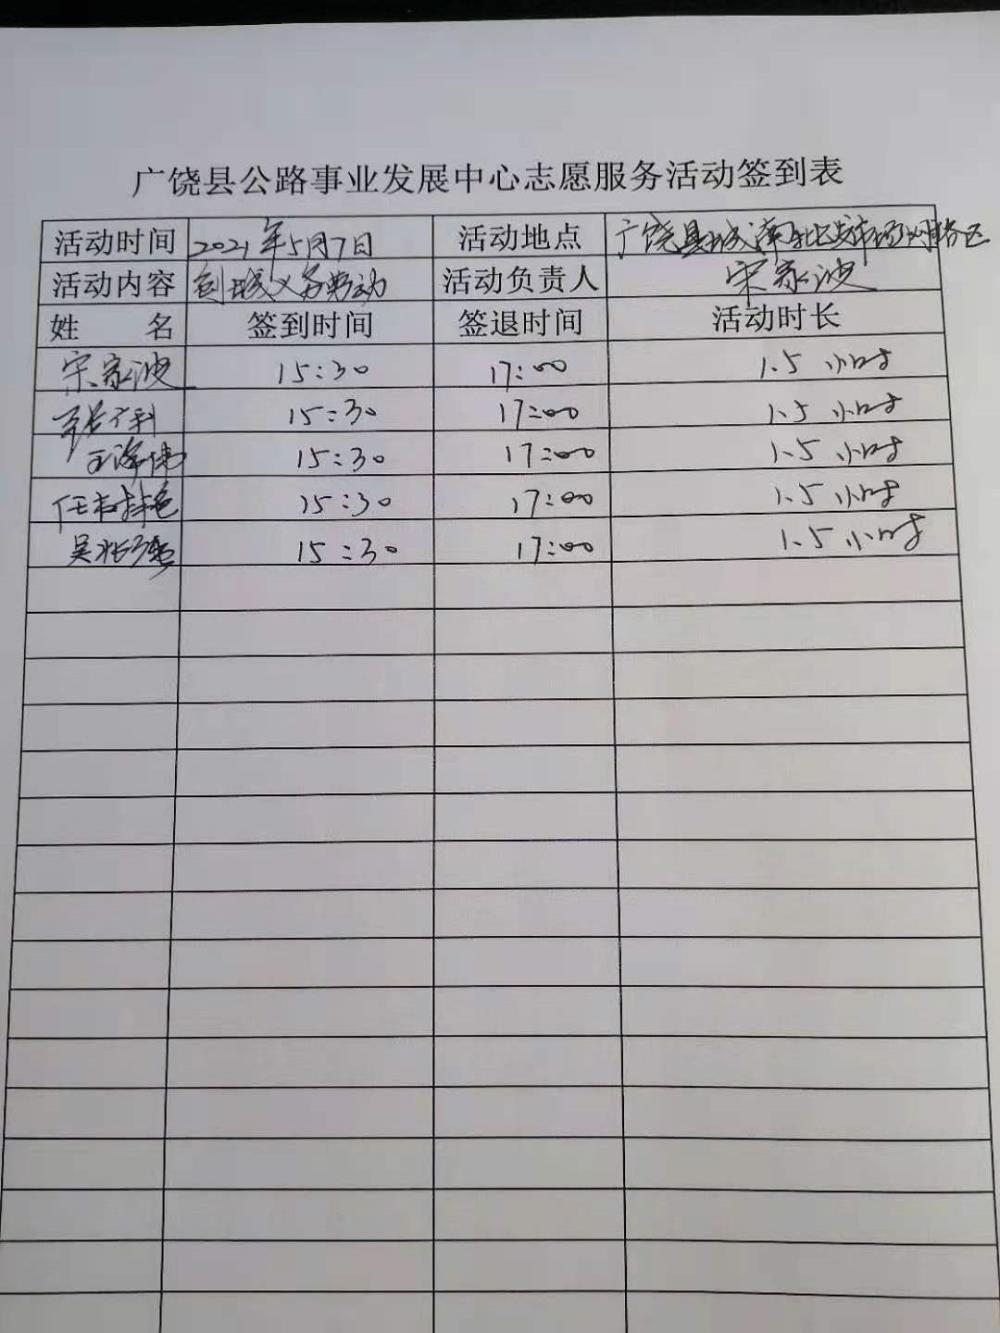 广饶县公路事业发展中心志愿服务活动签到表
活动时间 2021年5月7日 活动地点 广饶县城
活动内容 创城义务劳动 活动负责人 宋家波
姓 名 签到时间 签退时间 活动时长
宋家波 15:30 17:00 1.5 小时
15:30 17:00 1.5 小时
王泽伟 15:30 17:00 1.5 小时
任 15:30 17:00 1.5 小时
吴 15:30 17:00 1.5 小时